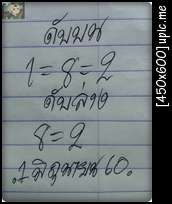 ดับบน
1 = 8 = 2
ดับล่าง
8 = 2
1 มิถุนายน 60.
[450x600] upic.me